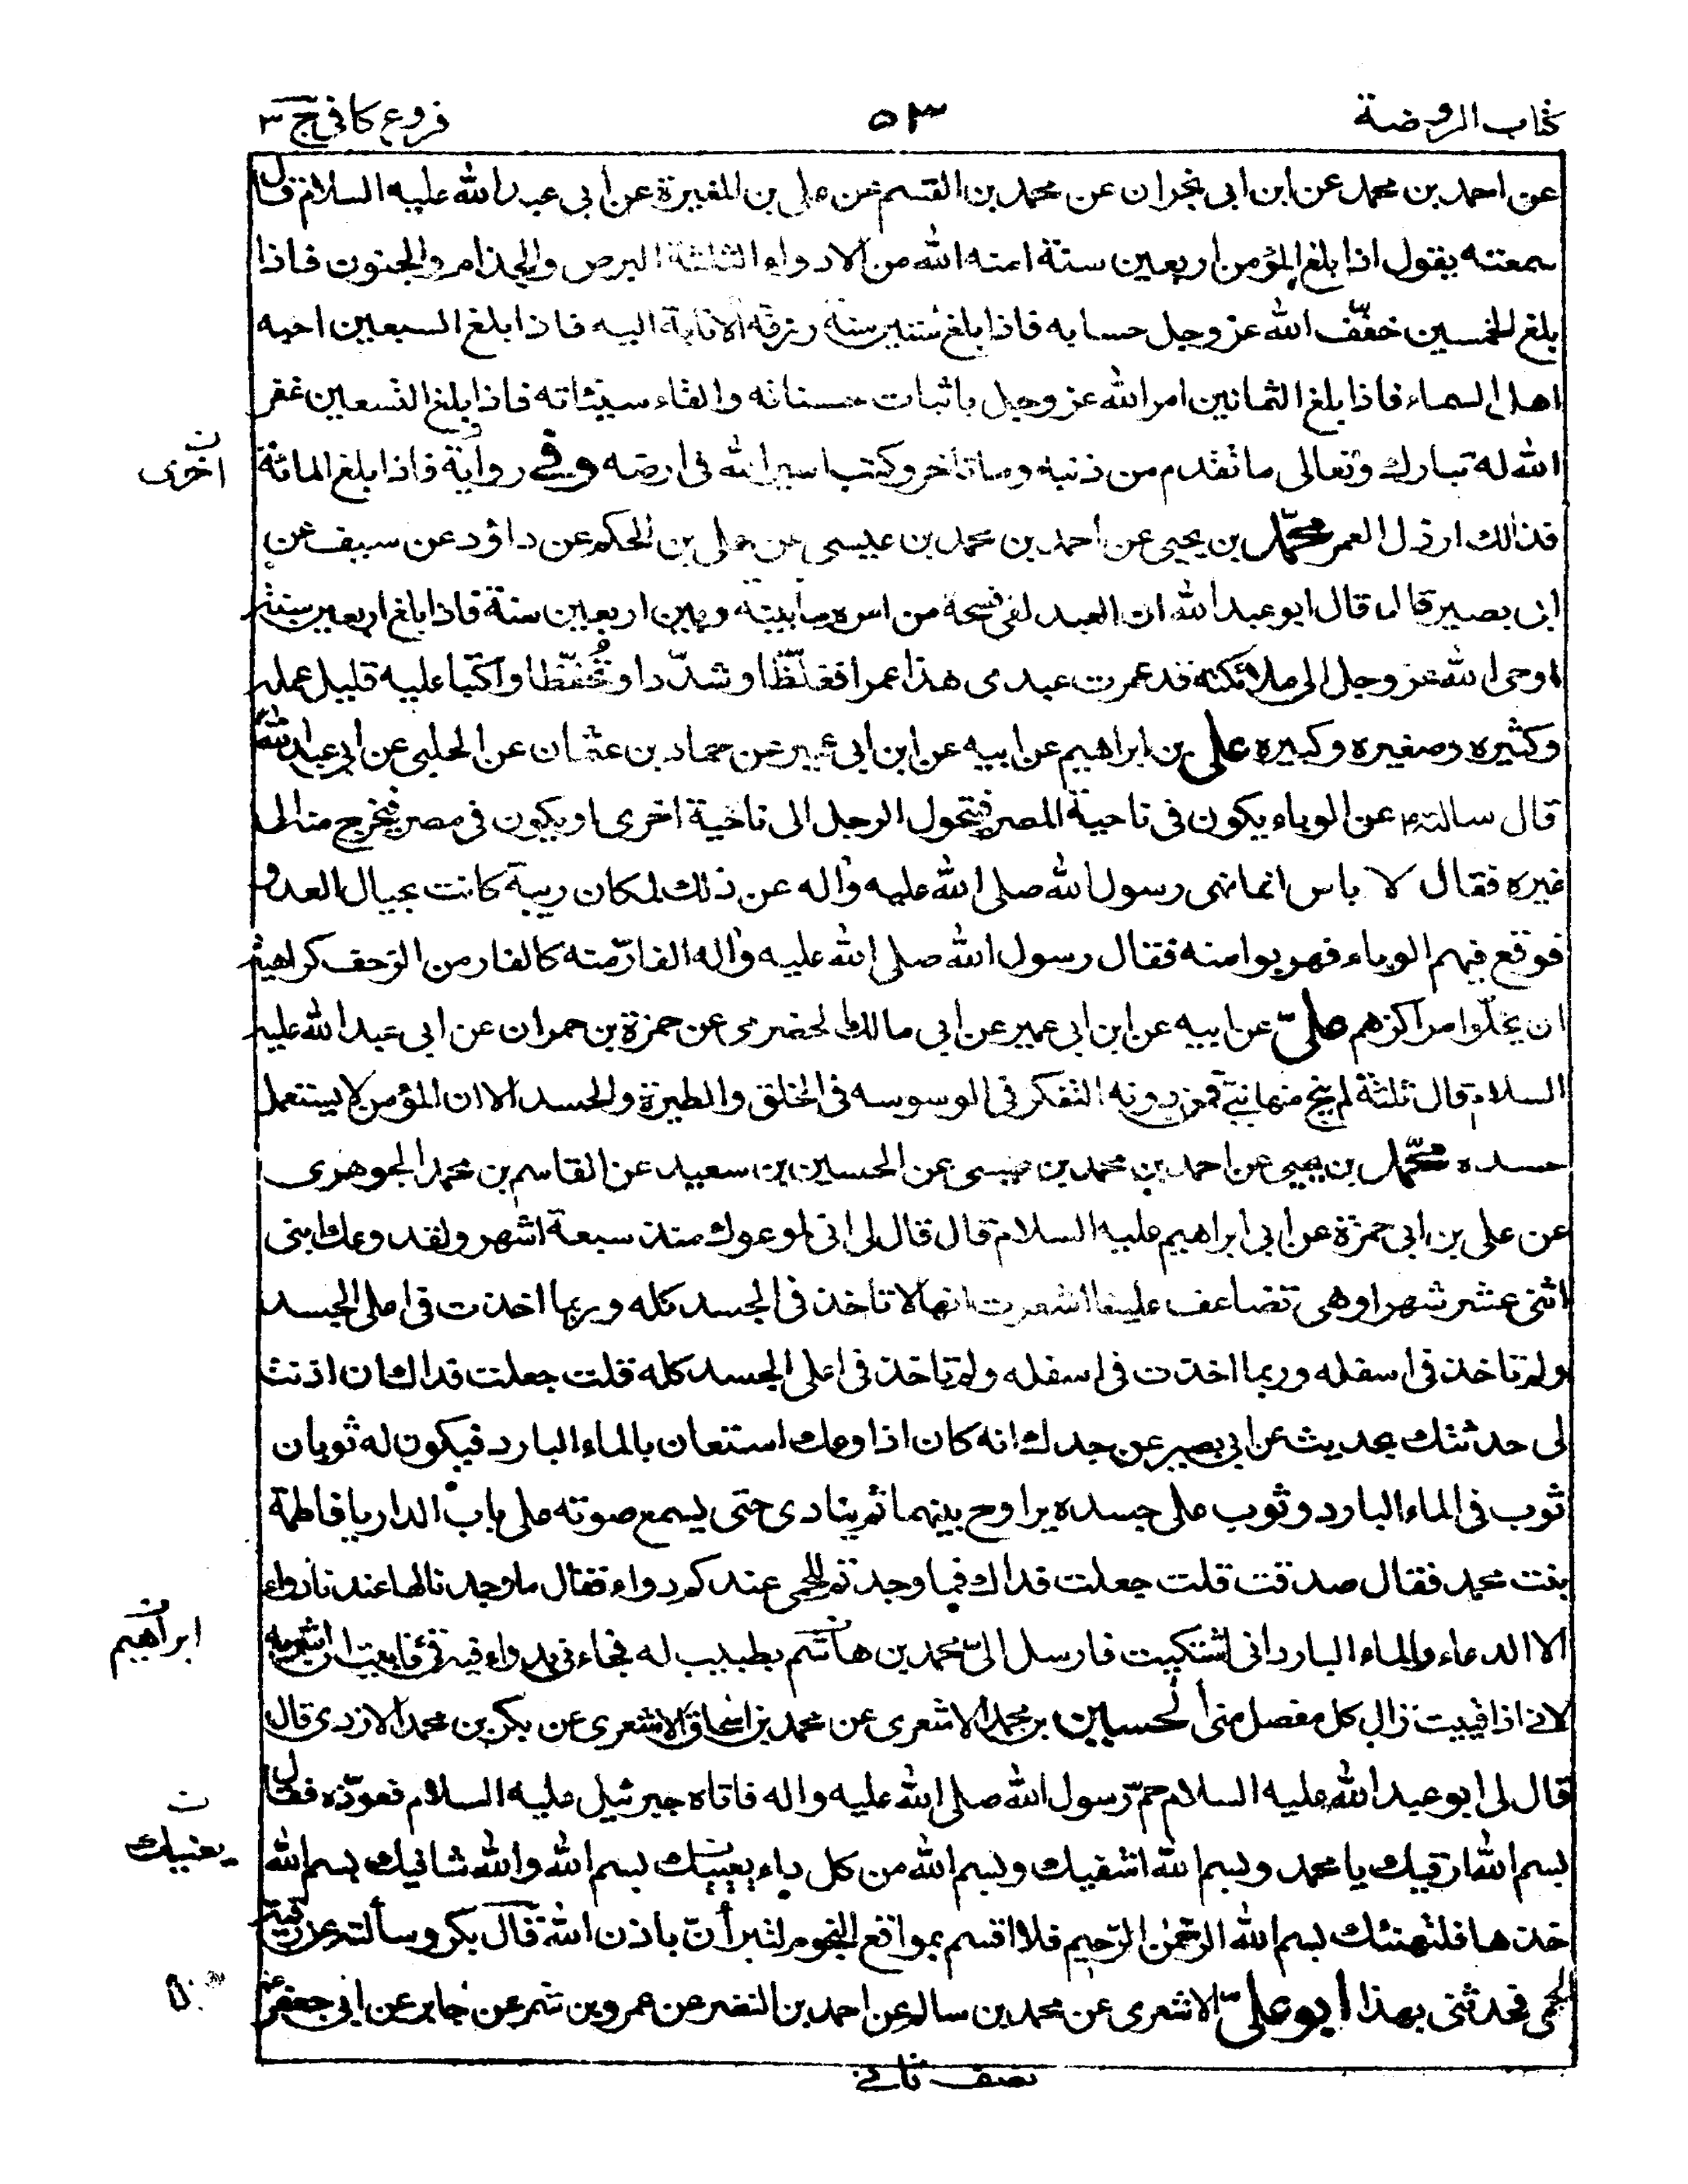 كتاب الروضة
٥٣
فروع كافى ج ٣
عن احمد بن محمد عن ابن ابى نجران عن محمد بن القسم عن على بن المغيرة عن ابى عبد الله عليه السلام قال
سمعته يقول اذا بلغ المؤمن اربعين سنة امنه الله من الادواء الثلثة البرص والجذام والجنون فاذا
بلغ الخمسين خفّف الله عز وجل حسابه فاذا بلغ ستين سنة رزقه الانابة اليه فاذا بلغ السبعين احبه
اهل السماء فاذا بلغ الثمانين امر الله عز وجل باثبات حسناته والقاء سيئاته فاذا بلغ التسعين غفر
الله له تبارك وتعالى ما تقدم من ذنبه وما تاخر وكتب اسير الله فى ارضه وفى رواية فاذا بلغ المائة
اخرى
فذالك ارذل العمر محمّد بن يحيى عن احمد بن محمد بن عيسى عن على بن الحكم عن داؤد عن سيف عن
ابى بصير قال قال ابو عبد الله ان العبد لفى فسحة من امره ما بينه وبين اربعين سنة فاذا بلغ اربعين سنة
اوحى الله عز وجل الى ملائكته قد عمرت عبدى هذا عمرا فغلّظا وشدّدا وتحفّظا واكتبا عليه قليل عمله
وكثيره وصغيره وكبيره على بن ابراهيم عن ابيه عن ابن ابى عمير عن حماد بن عثمان عن الحلبى عن ابى عبد الله
قال سالته عن الوباء يكون فى ناحية المصر فيتحول الرجل الى ناحية اخرى او يكون فى مصر فيخرج منه الى
غيره فقال لا باس انما نهى رسول الله صلى الله عليه واله عن ذلك لمكان ربيئة كانت بحيال العدو
فوقع فيهم الوباء فهربوا منه فقال رسول الله صلى الله عليه واله الفارّ منه كالفار من الزحف كراهية
ان يخلّوا مراكزهم علىّ عن ابيه عن ابن ابى عمير عن ابى مالك الحضرمى عن حمزة بن حمران عن ابى عبد الله عليه
السلام قال ثلثة لم ينج منها نبىّ فمن دونه التفكر فى الوسوسه فى الخلق والطيرة والحسد الا ان المؤمن لا يستعمل
حسده محمّد بن يحيى عن احمد بن محمد بن عيسى عن الحسين بن سعيد عن القاسم بن محمد الجوهرى
عن على بن ابى حمزة عن ابى ابراهيم عليه السلام قال قال لى انى لموعوك منذ سبعة اشهر ولقد وعك ابنى
اثنى عشر شهرا وهى تضاعف علينا اشعرت انها لا تاخذ فى الجسد كله وربما اخذت فى اعلى الجسد
ولم تاخذ فى اسفله وربما اخذت فى اسفله ولم تاخذ فى اعلى الجسد كله قلت جعلت فداك ان اذنت
لى حدثتك بحديث عن ابى بصير عن جدك انه كان اذا وعك استعان بالماء البارد فيكون له ثوبان
ثوب فى الماء البارد وثوب على جسده يراوح بينهما ثم ينادى حتى يسمع صوته على باب الدار يا فاطمة
بنت محمد فقال صدقت قلت جعلت فداك فما وجدتم للحمى عندكم دواء فقال ما وجدنا لها عندنا دواء
الا الدعاء والماء البارد انى اشتكيت فارسل الىّ محمد بن هاشم بطبيب له فجاءنى بدواء فيه قئ فابيت ان اشربه
ابراهيم
لانى اذا قييت زال كل مفصل منى الحسين بن محمد الاشعرى عن محمد بن اسحاق الاشعرى عن بكر بن محمد الازدى قال
قال لى ابو عبد الله عليه السلام حمّ رسول الله صلى الله عليه واله فاتاه جبرئيل عليه السلام فعوّذه فقال
بسم الله ارقيك يا محمد وبسم الله اشفيك وبسم الله من كل داء يعييك بسم الله والله شافيك بسم الله
يعنيك
خذها فلتهنئك بسم الله الرحمن الرّحيم فلا اقسم بمواقع النجوم لتبرأنّ باذن الله قال بكر وسألته عن رقية
الحمى فحدثنى بهذا ابو علىّ الاشعرى عن محمد بن سالم عن احمد بن النضر عن عمرو بن شمر عن جابر عن ابى جعفر
نصف ثانى